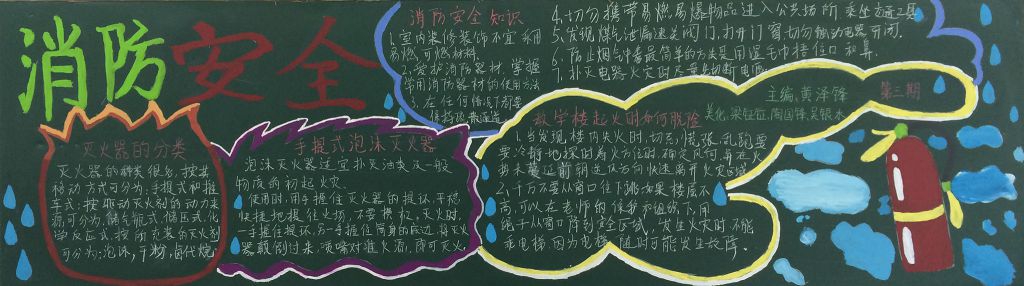 消防安全
消防安全知识
1.室内装修装饰不宜采用
易燃、可燃材料.
2.爱护消防器材,掌握
常用消防器材的使用方法
3.在任何情况下都要
保持疏散通道
4.切勿携带易燃易爆物品进入公共场所、乘坐交通工具
5.发现煤气泄漏速关阀门,打开门窗切勿触动电器开闭.
6.防止烟气中毒最简单的方法是用湿毛巾捂住口和鼻.
7.扑灭电器火灾时应首先切断电源
主编:黄泽锋 第三期
灭火器的分类
灭火器的种类很多,按其
移动方式可分为:手提式和推
车式;按驱动灭火剂的动力来
源可分为:储气瓶式、储压式、化
学反应式;按所充装的灭火剂
可分为:泡沫,干粉,卤代烷
手提式泡沫灭火器
泡沫灭火器适宜扑灭油类及一般
物质的初起火灾.
使用时,用手握住灭火器的提环,平稳、
快捷地提往火场,不要横扛。灭火时,
一手握住提环,另一手握住筒身的底边,将灭火
器颠倒过来,喷嘴对准火源,即可灭火.
教学楼起火时如何脱险
1.当发现楼内失火时,切忌慌张、乱跑,
要冷静地探明着火方位,确定风向,并在火
势未蔓延前朝逆风方向快速离开火灾区域
2.千万不要从窗口往下跳.如果楼层不
高,可以在老师的保护和组织下,用
绳子从窗口降到安全区域,发生火灾时,不能
乘电梯,因为电梯随时可能发生故障.